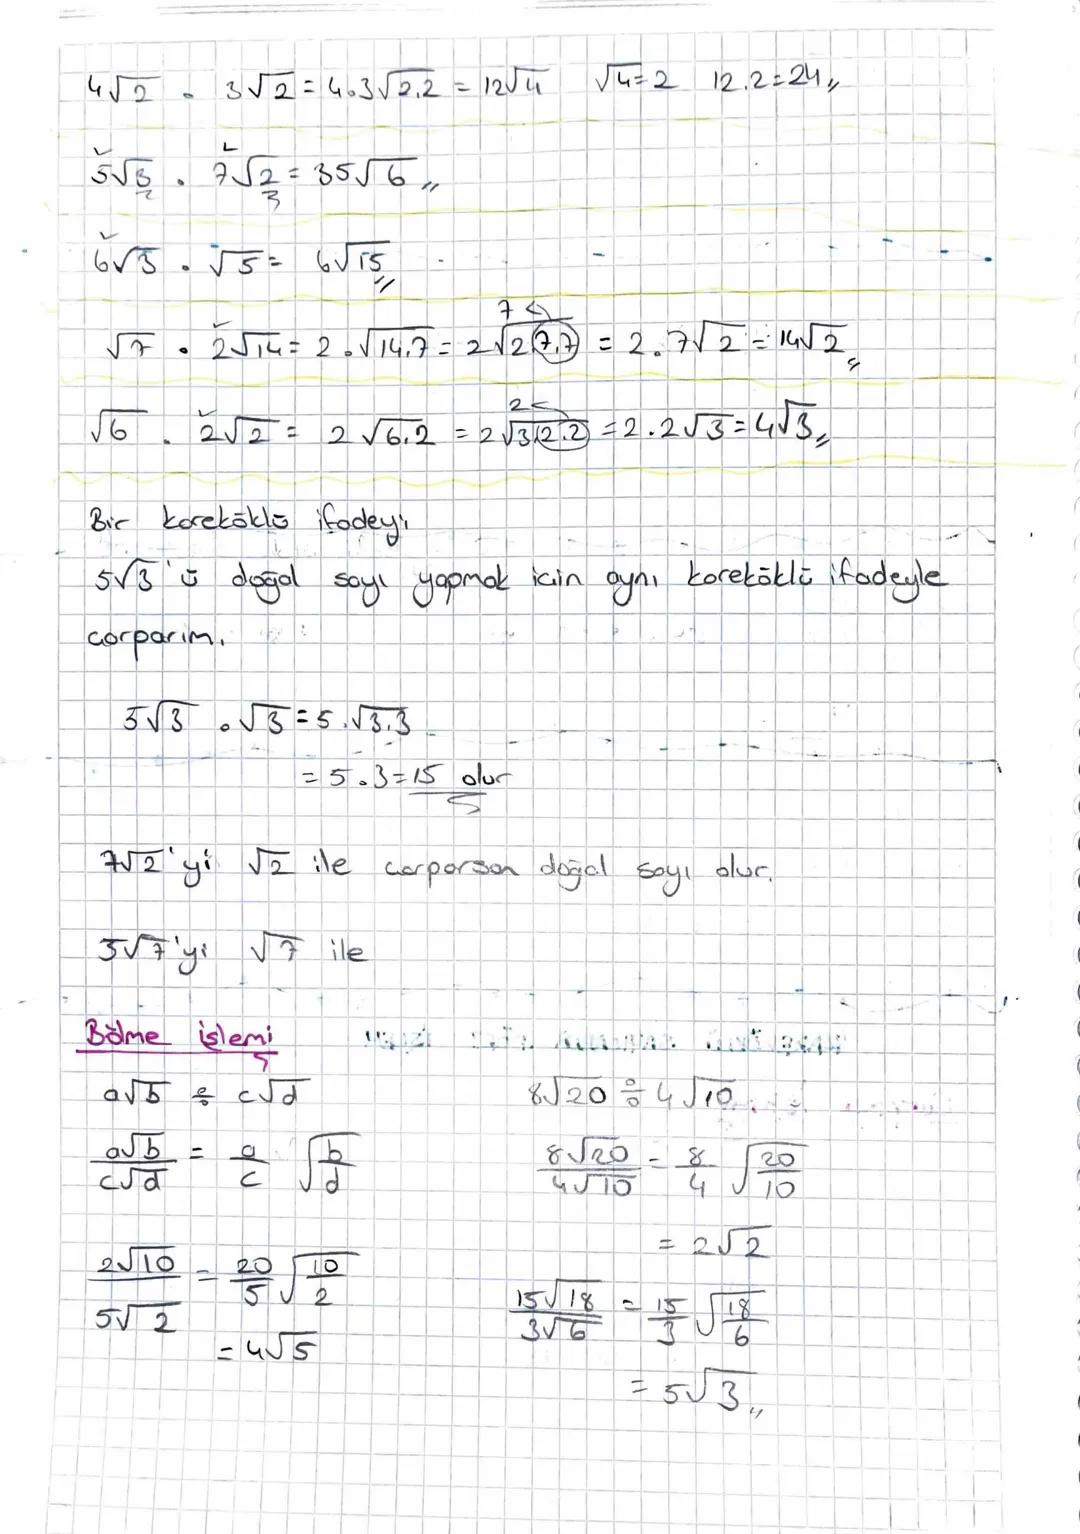 4√2 . 3√2 = 4.3√2.2 = 12√4 √4=2 12.2=24
5√3 . 7√2 = 35√6
6√3 . √5 = 6√15
7
√7 . 2√14 = 2.√14.7 = 2√2(7.7) = 2.7√2 = 14√2
2
√6 . 2√2 = 2√6.2 = 2√3(2.2) = 2.2√3 = 4√3
Bir kareköklü ifadeyi
5√3'ü doğal sayı yapmak için aynı kareköklü ifadeyle
çarparım.
5√3 . √3 = 5.√3.3
= 5.3 = 15 olur
7√2'yi √2 ile çarparsan doğal sayı olur.
3√7'yi √7 ile
Bölme işlemi
a√b ÷ c√d 8√20 ÷ 4√10
a√b/c√d = a/c √b/d 8√20/4√10 = 8/4 √20/10
= 2√2
2√10/5√2 = 20/5 √10/2 15√18/3√6 = 15/3 √18/6
= 4√5
= 5√3